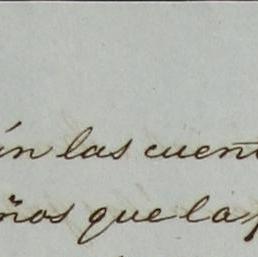 ín las cuent
ños que la p